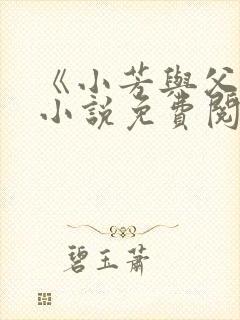 《小芳與父
小說免費閱
碧玉蕭